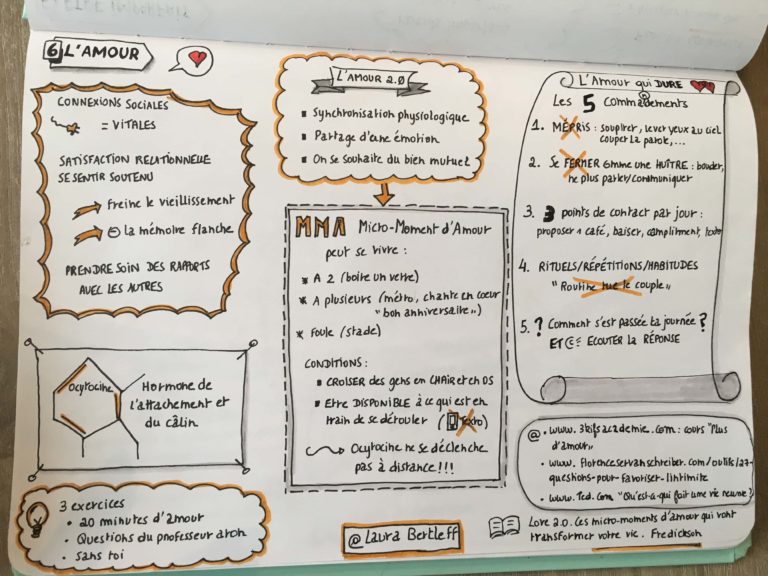 6 L'AMOUR
CONNEXIONS SOCIALES
= VITALES
SATISFACTION RELATIONNELLE
SE SENTIR SOUTENU
Freine le vieillissement
⊖ la mémoire flanche
PRENDRE SOIN DES RAPPORTS
AVEC LES AUTRES
Ocytocine
Hormone de
l'attachement et
du câlin
3 exercices
• 20 minutes d'amour
• Questions du professeur aron
• Sans toi
L'AMOUR 2.0
▪ Synchronisation physiologique
▪ Partage d'une émotion
▪ On se souhaite du bien mutuel
MMA Micro-Moment d'Amour
peut se vivre :
* A 2 (boire un verre)
* A plusieurs (métro, chante en coeur
"bon anniversaire")
* Foule (stade)
CONDITIONS :
▪ CROISER des gens en CHAIR et en OS
▪ Etre DISPONIBLE à ce qui est en
train de se dérouler (texto)
Ocytocine ne se déclenche
pas à distance !!!
@Laura Bertleff
L'Amour qui DURE
Les 5 commandements
1. MÉPRIS : soupirer, lever yeux au ciel
couper la parole,...
2. Se FERMER comme une HUÎTRE : bouder,
ne plus parler/communiquer
3. 3 points de contact par jour :
proposer 1 café, baiser, compliment, texto
4. RITUELS/RÉPÉTITIONS/HABITUDES
"Routine tue le couple"
5. ? Comment s'est passée ta journée ?
ET ECOUTER LA RÉPONSE
@ • www.3kifsacademie.com : cours "Plus
d'amour"
• www.florenceservanschreiber.com/outils/27-
questions-pour-favoriser-lintimite
• www.Ted.com "Qu'est-ce qui fait une vie réussie?
Love 2.0. Ces micro-moments d'amour qui vont
transformer votre vie. Fredickson